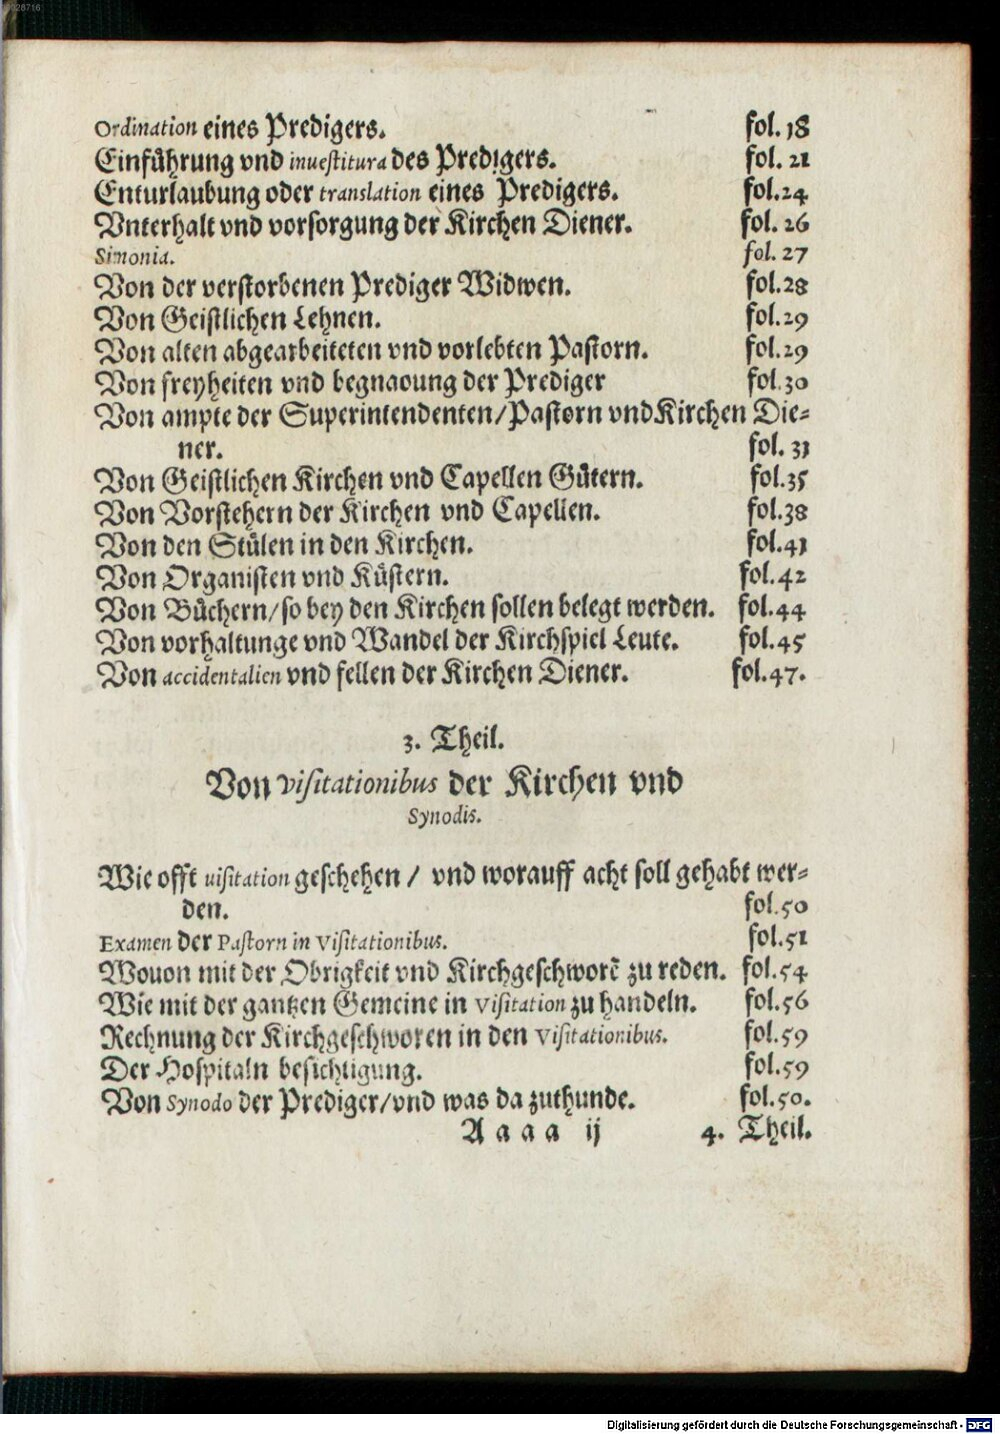 Ordination eines Predigers. fol. 18
Einführung vnd inuestitura des Predigers. fol. 21
Enturlaubung oder translation eines Predigers. fol. 24
Vnterhalt vnd vorsorgung der Kirchen Diener. fol. 26
Simonia. fol. 27
Von der verstorbenen Prediger Widwen. fol. 28
Von Geistlichen Lehnen. fol. 29
Von alten abgearbeiteten vnd vorlebten Pastorn. fol. 29
Von freyheiten vnd begnaoung der Prediger fol. 30
Von ampte der Superintendenten/Pastorn vnd Kirchen Die-
ner. fol. 31
Von Geistlichen Kirchen vnd Capellen Gütern. fol. 35
Von Vorstehern der Kirchen vnd Capellen. fol. 38
Von den Stülen in den Kirchen. fol. 41
Von Organisten vnd Küstern. fol. 42
Von Büchern/so bey den Kirchen sollen belegt werden. fol. 44
Von vorhaltunge vnd Wandel der Kirchspiel Leute. fol. 45
Von accidentalien vnd fellen der Kirchen Diener. fol. 47.
3. Theil.
Von visitationibus der Kirchen vnd
Synodis.
Wie offt visitation geschehen / vnd worauff acht soll gehabt wer-
den. fol. 50
Examen der Pastorn in Visitationibus. fol. 51
Wouon mit der Obrigkeit vnd Kirchgeschworē zu reden. fol. 54
Wie mit der gantzen Gemeine in Visitation zu handeln. fol. 56
Rechnung der Kirchgeschworen in den Visitationibus. fol. 59
Der Hospitaln besichtigung. fol. 59
Von Synodo der Prediger/vnd was da zuthunde. fol. 50.
A a a a ij 4. Theil.
Digitalisierung gefördert durch die Deutsche Forschungsgemeinschaft - DFG